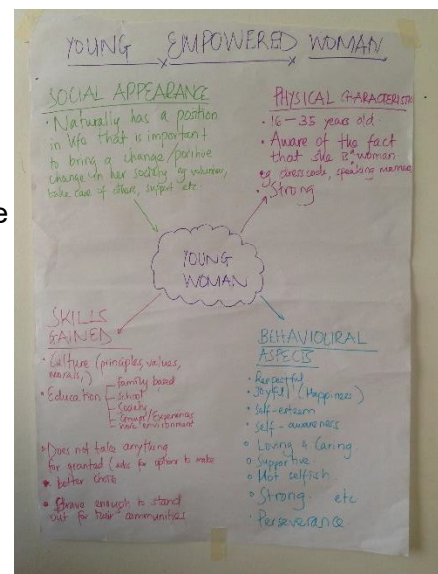 YOUNG EMPOWERED WOMAN
SOCIAL APPEARANCE
• Naturally has a position
in life that is important
to bring a change/positive
change in her society, eg volunteer,
take care of others, support etc
PHYSICAL CHARACTERISTIC
• 16 – 35 years old
• Aware of the fact
that she is a woman
eg dress code, speaking manners
• Strong
YOUNG
WOMAN
SKILLS
GAINED
• Culture (principles, values,
morals,)
• Education
family based
school
society
/Experiences
work environment
• Does not take anything
for granted (asks for options to make
better choice
• Brave enough to stand
out for their communities
BEHAVIOURAL
ASPECTS
• Respectful
• Joyful (Happiness)
• Self-esteem
• Self-awareness
• Loving & Caring
• Supportive
• Not selfish
• Strong. etc
• Perseverance
e